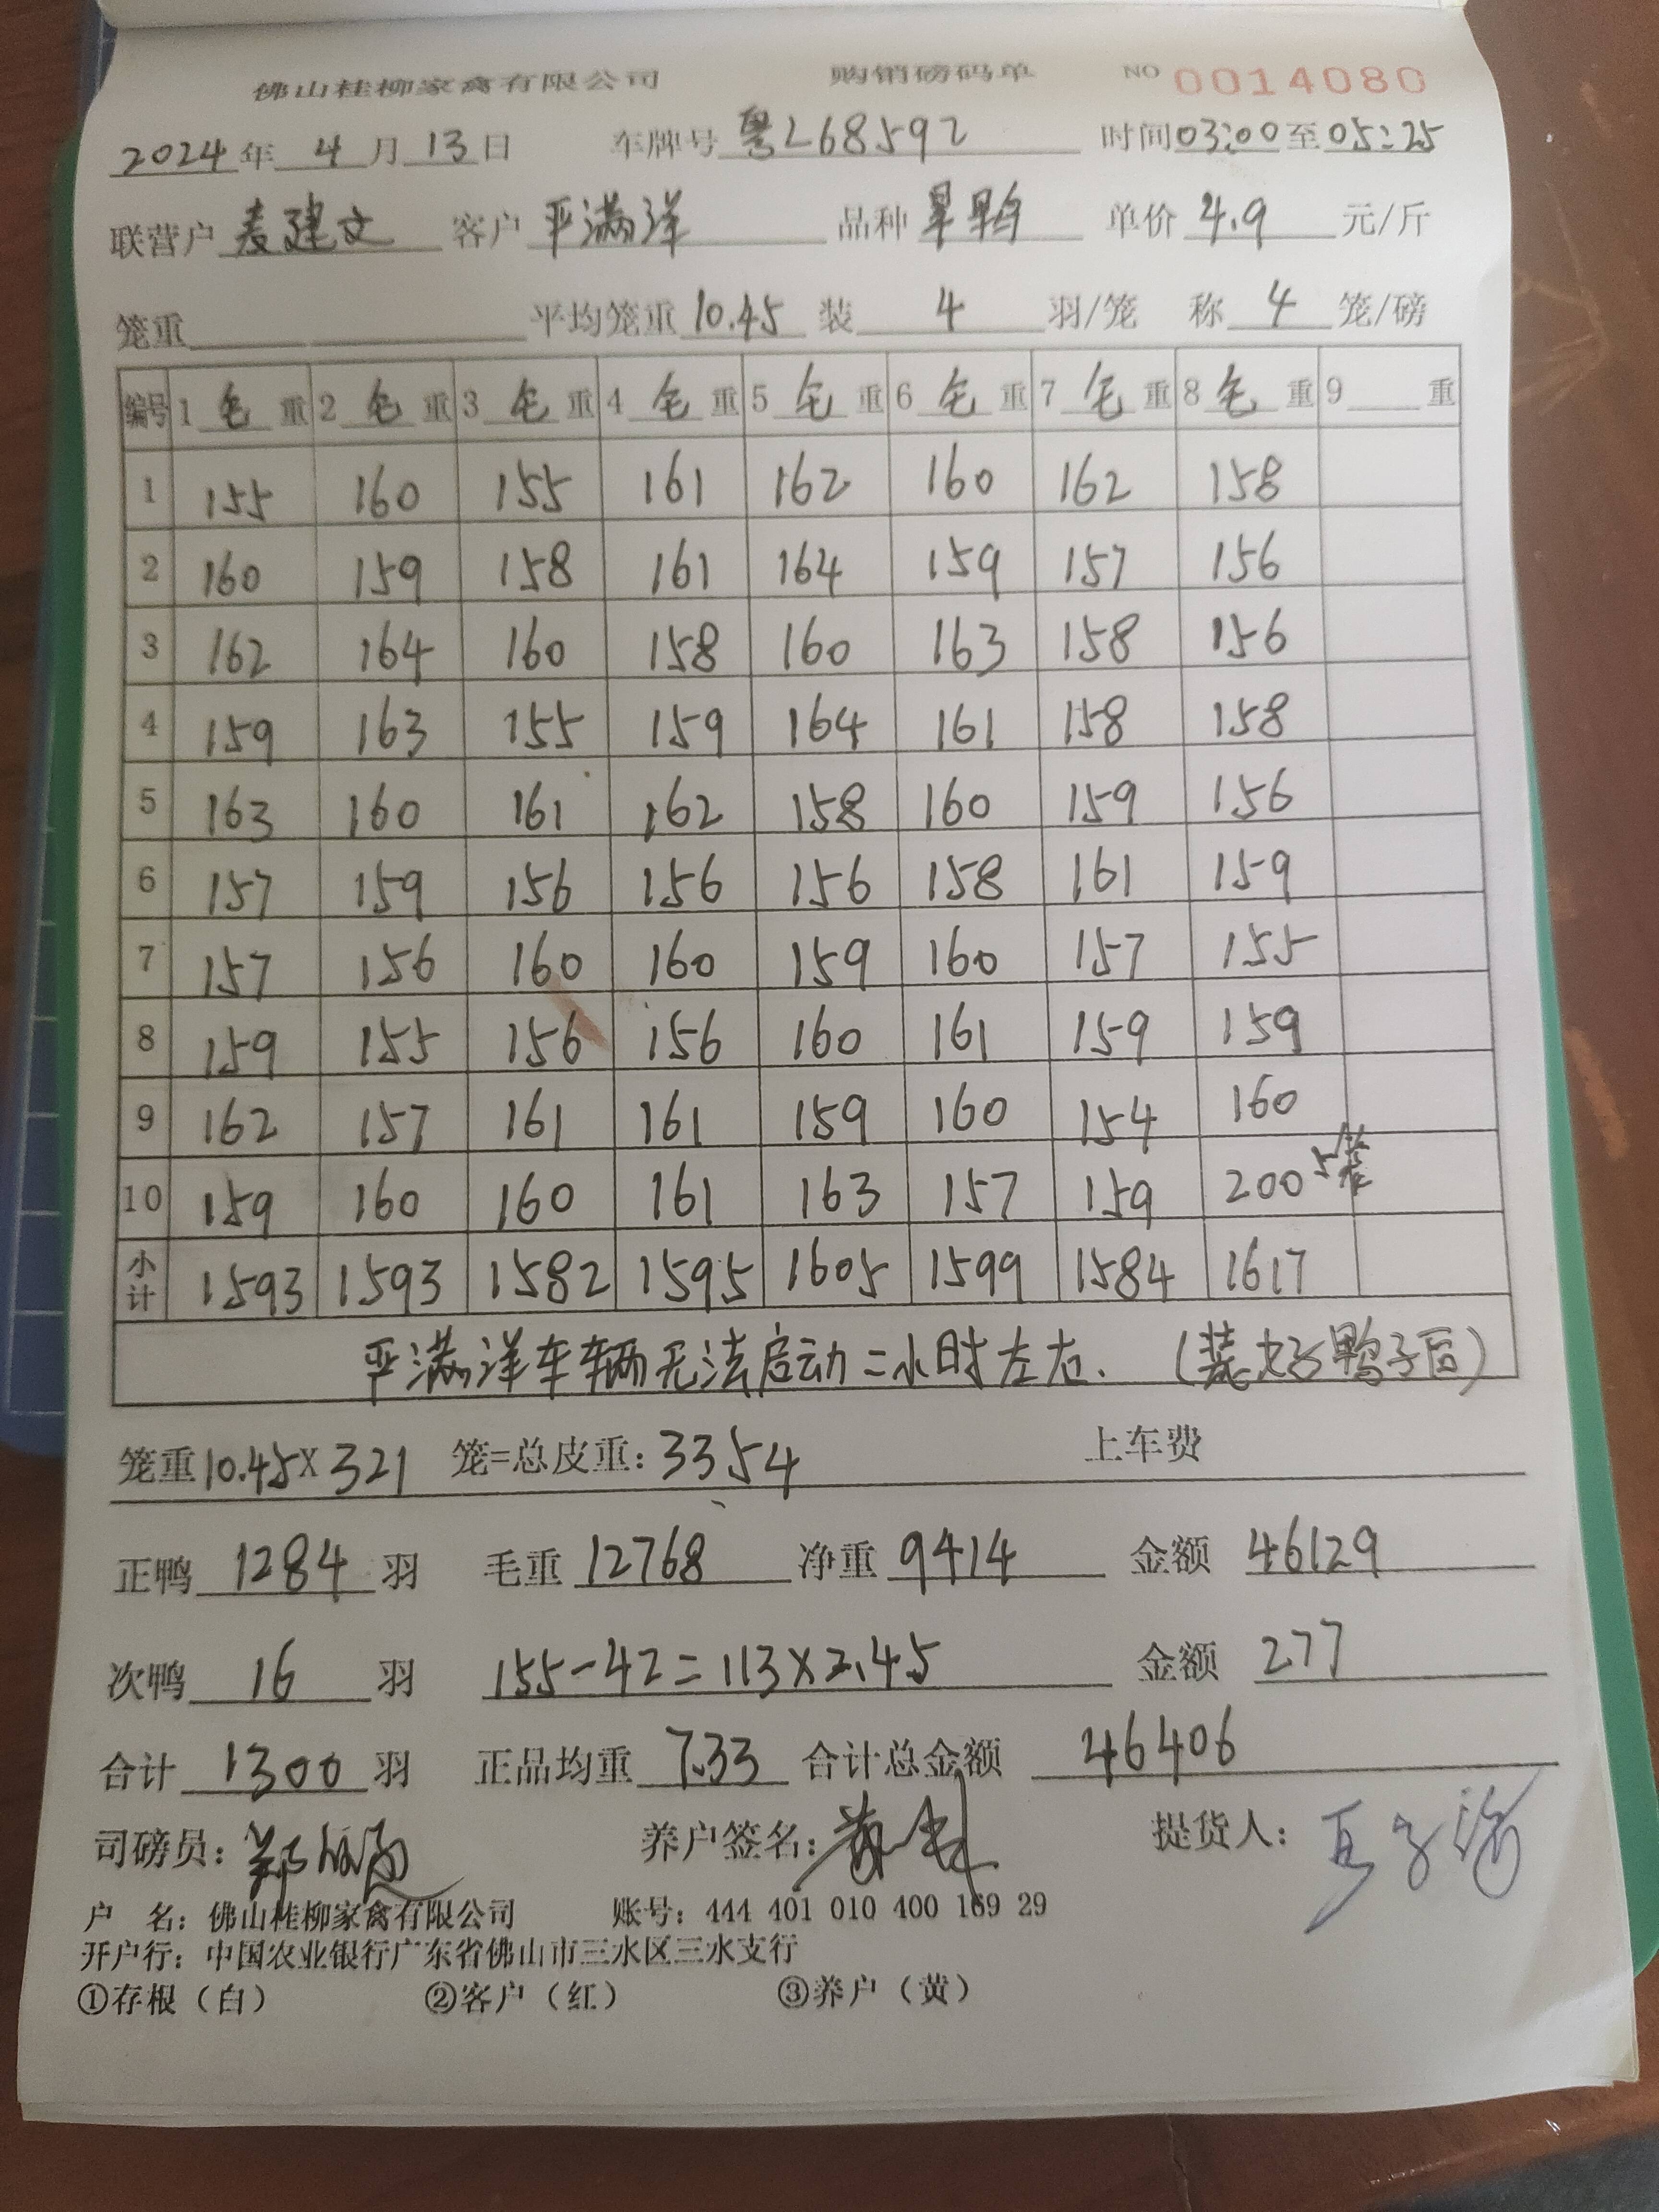 佛山桂柳家禽有限公司 购销磅码单 NO 0014080
2024年 4月 13日 车牌号 粤L68592 时间 03:00 至 05:25
联营户 麦建文 客户 严满洋 品种 单价 4.9 元/斤
笼重 平均笼重 10.45 装 4 羽/笼 称 4 笼/磅
编号 1 毛 重 2 毛 重 3 毛 重 4 毛 重 5 毛 重 6 毛 重 7 毛 重 8 毛 重 9 重
1 155 160 155 161 162 160 162 158
2 160 159 158 161 164 159 157 156
3 162 164 160 158 160 163 158 156
4 159 163 155 159 164 161 158 158
5 163 160 161 162 158 160 159 156
6 157 159 156 156 156 158 161 159
7 157 156 160 160 159 160 157 155
8 159 155 156 156 160 161 159 159
9 162 157 161 161 159 160 154 160
10 159 160 160 161 163 157 159 200 5笼
小计 1593 1593 1582 1595 1605 1599 1584 1617
严满洋车辆无法启动二小时左右. (装好鸭子后)
笼重 10.45 X 321 笼=总皮重: 3354 上车费
正鸭 1284 羽 毛重 12768 净重 9414 金额 46129
次鸭 16 羽 155-42=113X2.45 金额 277
合计 1300 羽 正品均重 7.33 合计总金额 46406
司磅员: 养户签名: 提货人:
户 名: 佛山桂柳家禽有限公司 账号: 444 401 010 400 169 29
开户行: 中国农业银行广东省佛山市三水区三水支行
①存根(白) ②客户(红) ③养户(黄)